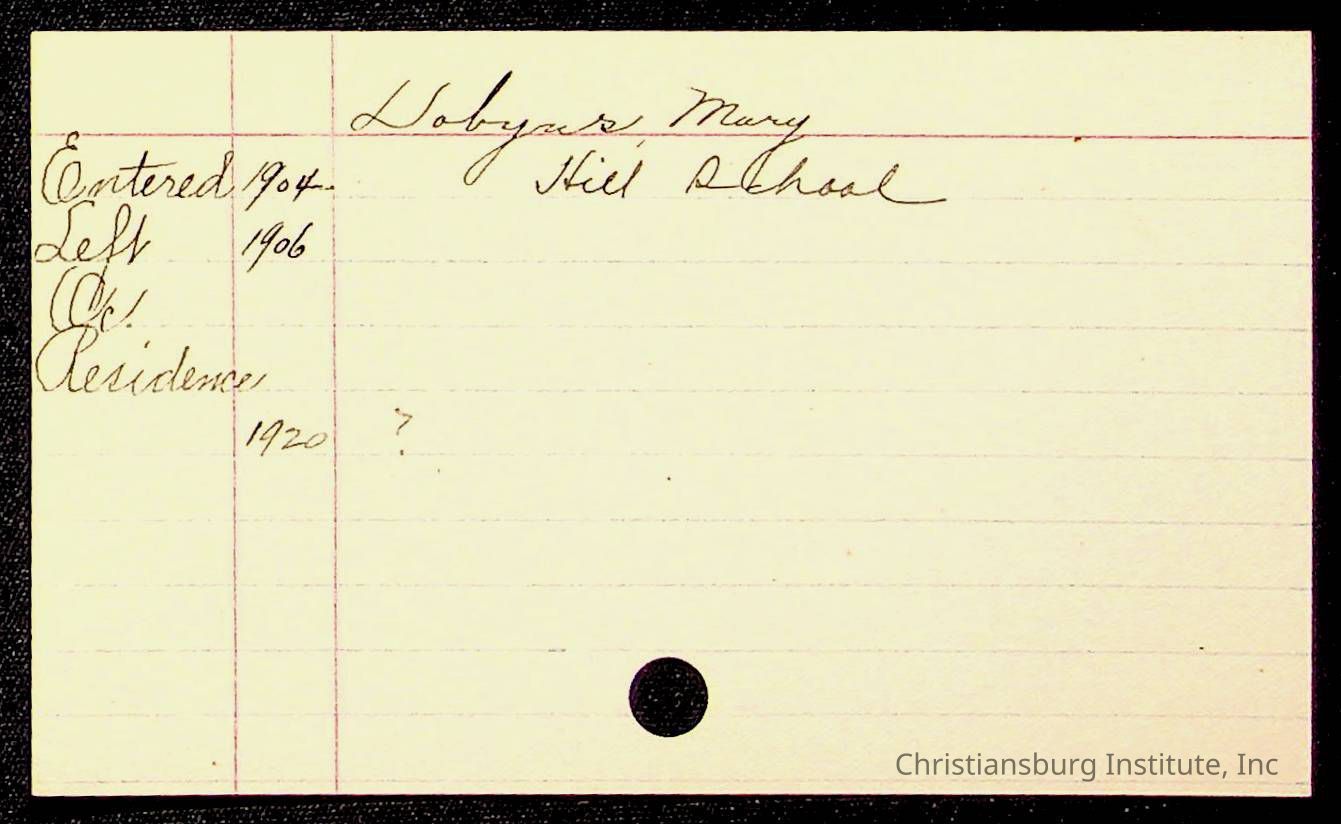 Dobyns, Mary
Entered 1904 Hill School
Left 1906
Oc.
Residence
1920 ?
Christiansburg Institute, Inc